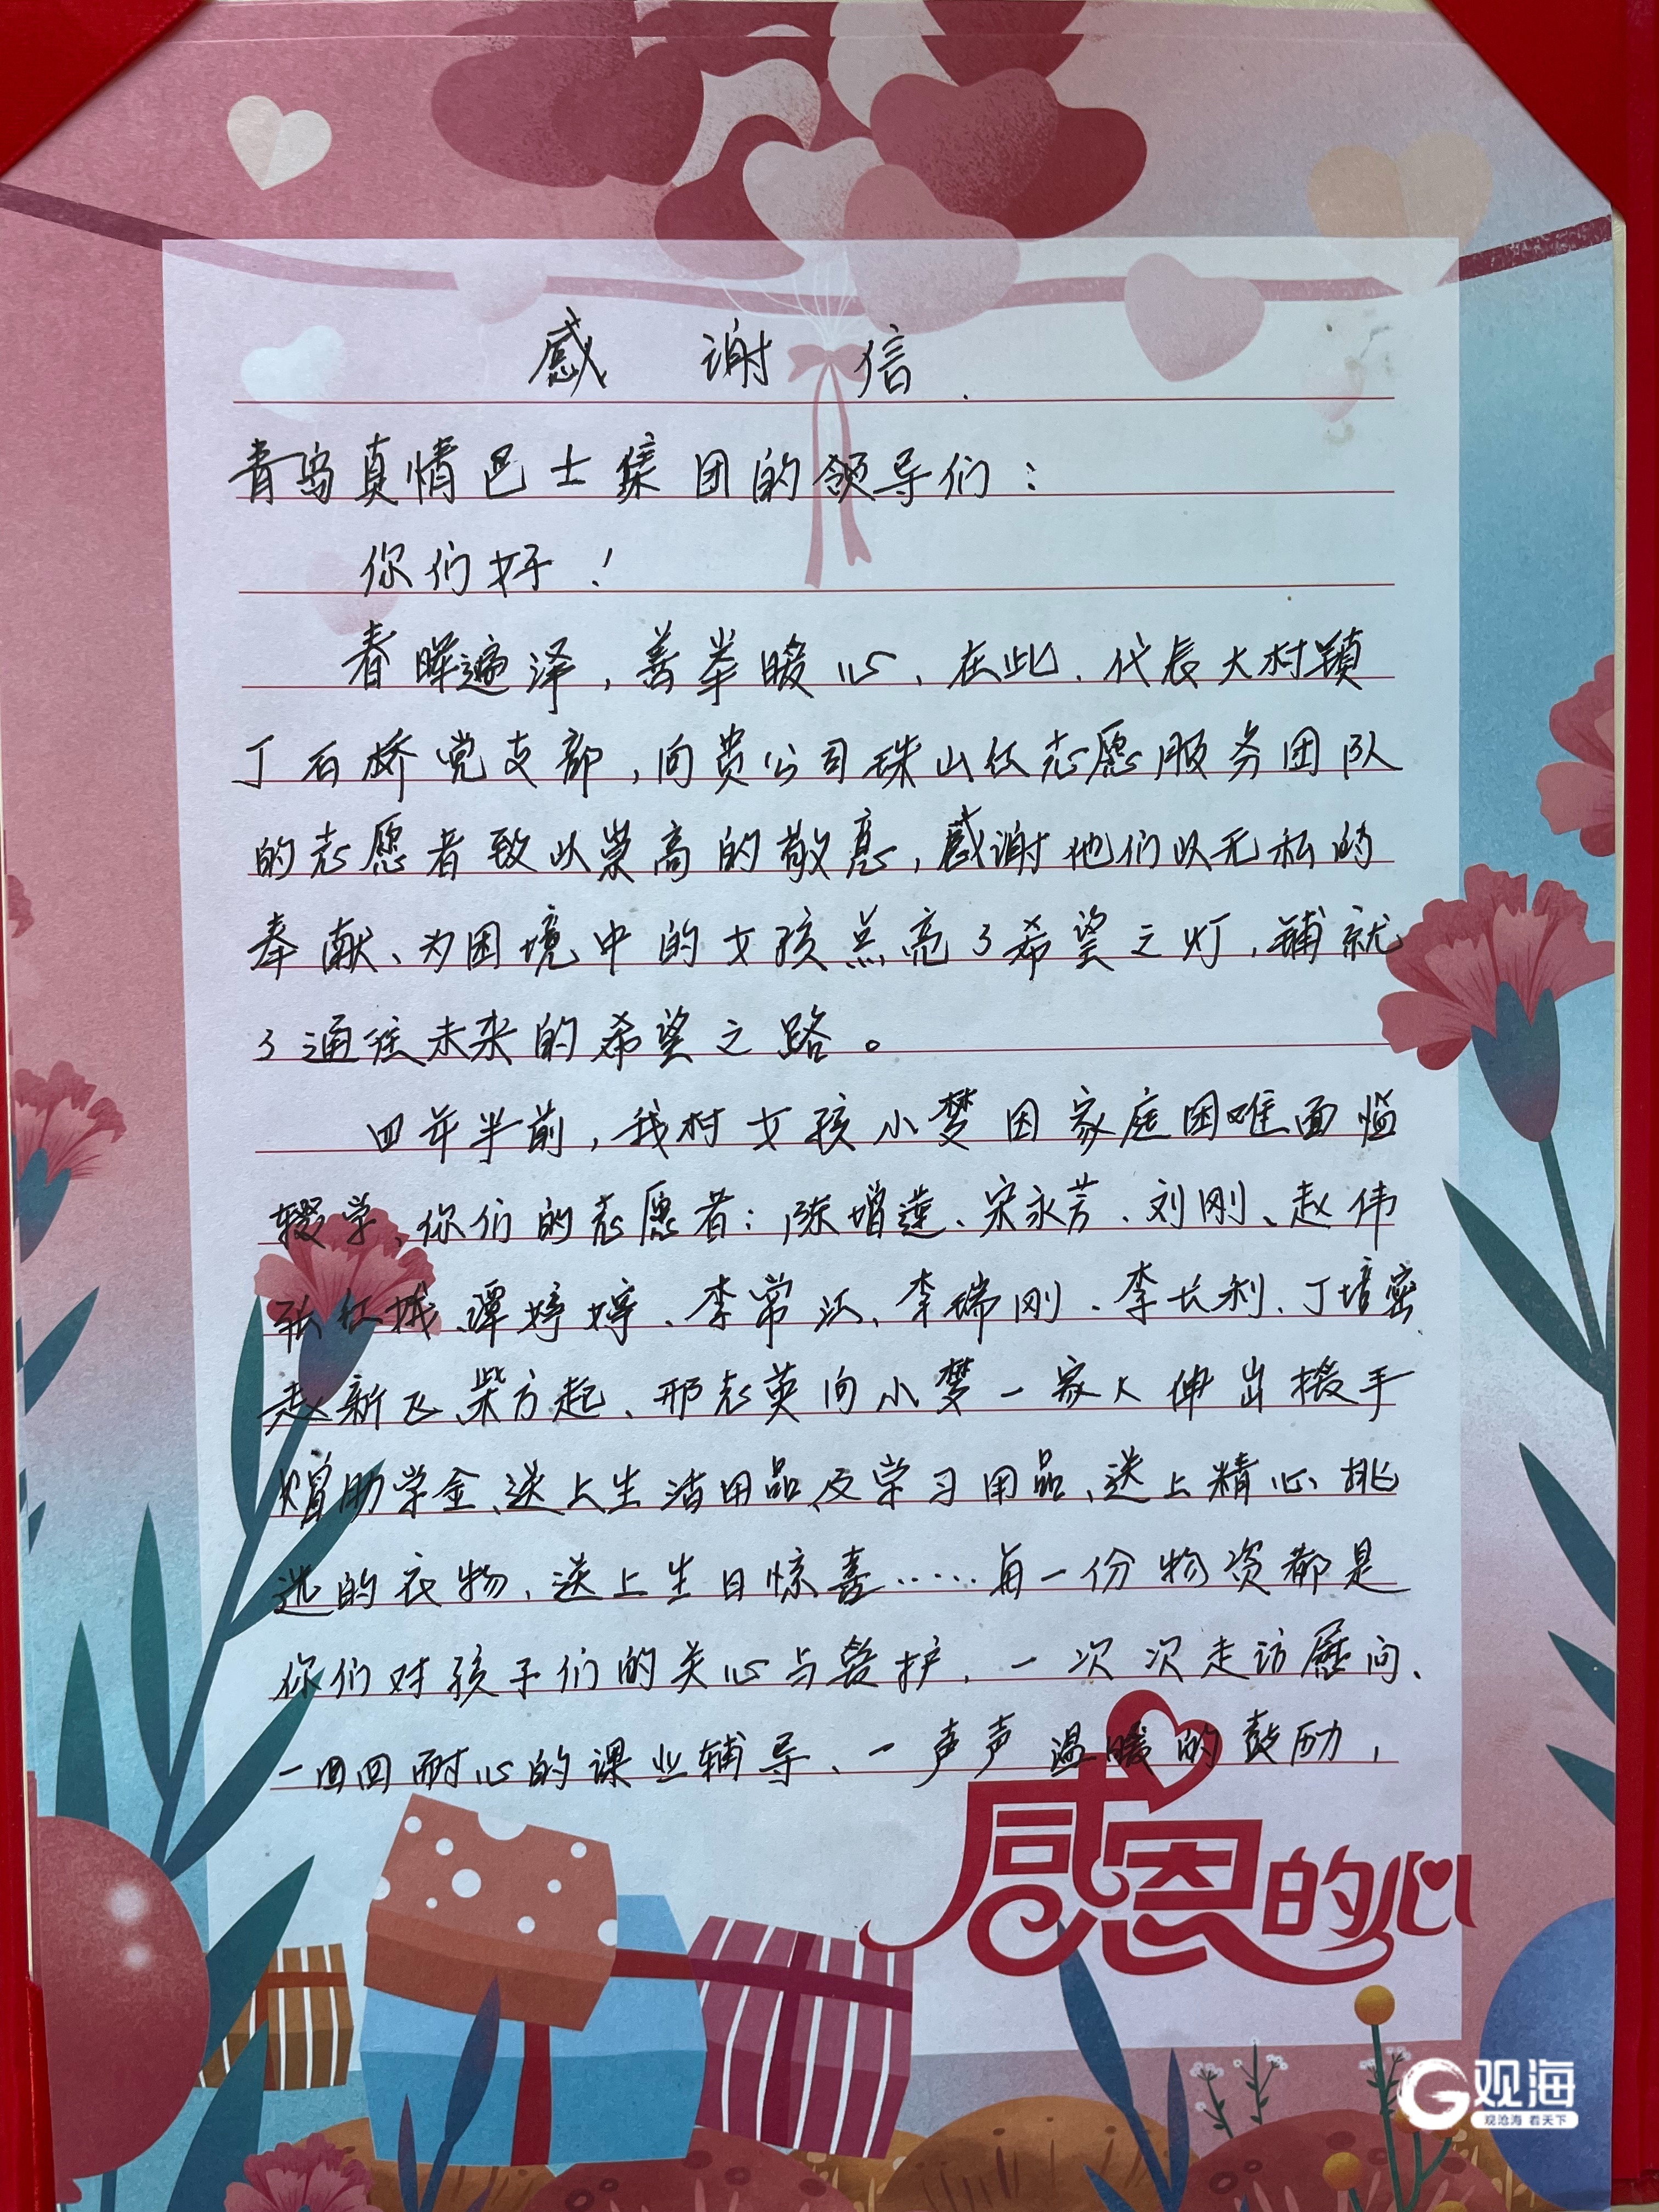 感谢信
青岛真情巴士集团的领导们：
你们好！
春晖遍泽，善举暖心，在此，代表大村镇
丁石桥党支部，向贵公司珠山红志愿服务团队
的志愿者致以崇高的敬意，感谢他们以无私的
奉献、为困境中的女孩点亮了希望之灯，铺就
了通往未来的希望之路。
四年半前，我村女孩小梦因家庭困难面临
辍学，你们的志愿者：陈增莲、宋永芳、刘刚、赵伟
张红城、谭婷婷、李常江、李瑞刚、李长利、丁培密
赵新飞、柴方起、邢志英向小梦一家人伸出援手
赠助学金、送上生活用品及学习用品、送上精心挑
选的衣物、送上生日惊喜……每一份物资都是
你们对孩子们的关心与爱护，一次次走访慰问、
一回回耐心的课业辅导、一声声温暖的鼓励，
感恩的心
观海
观沧海 看天下